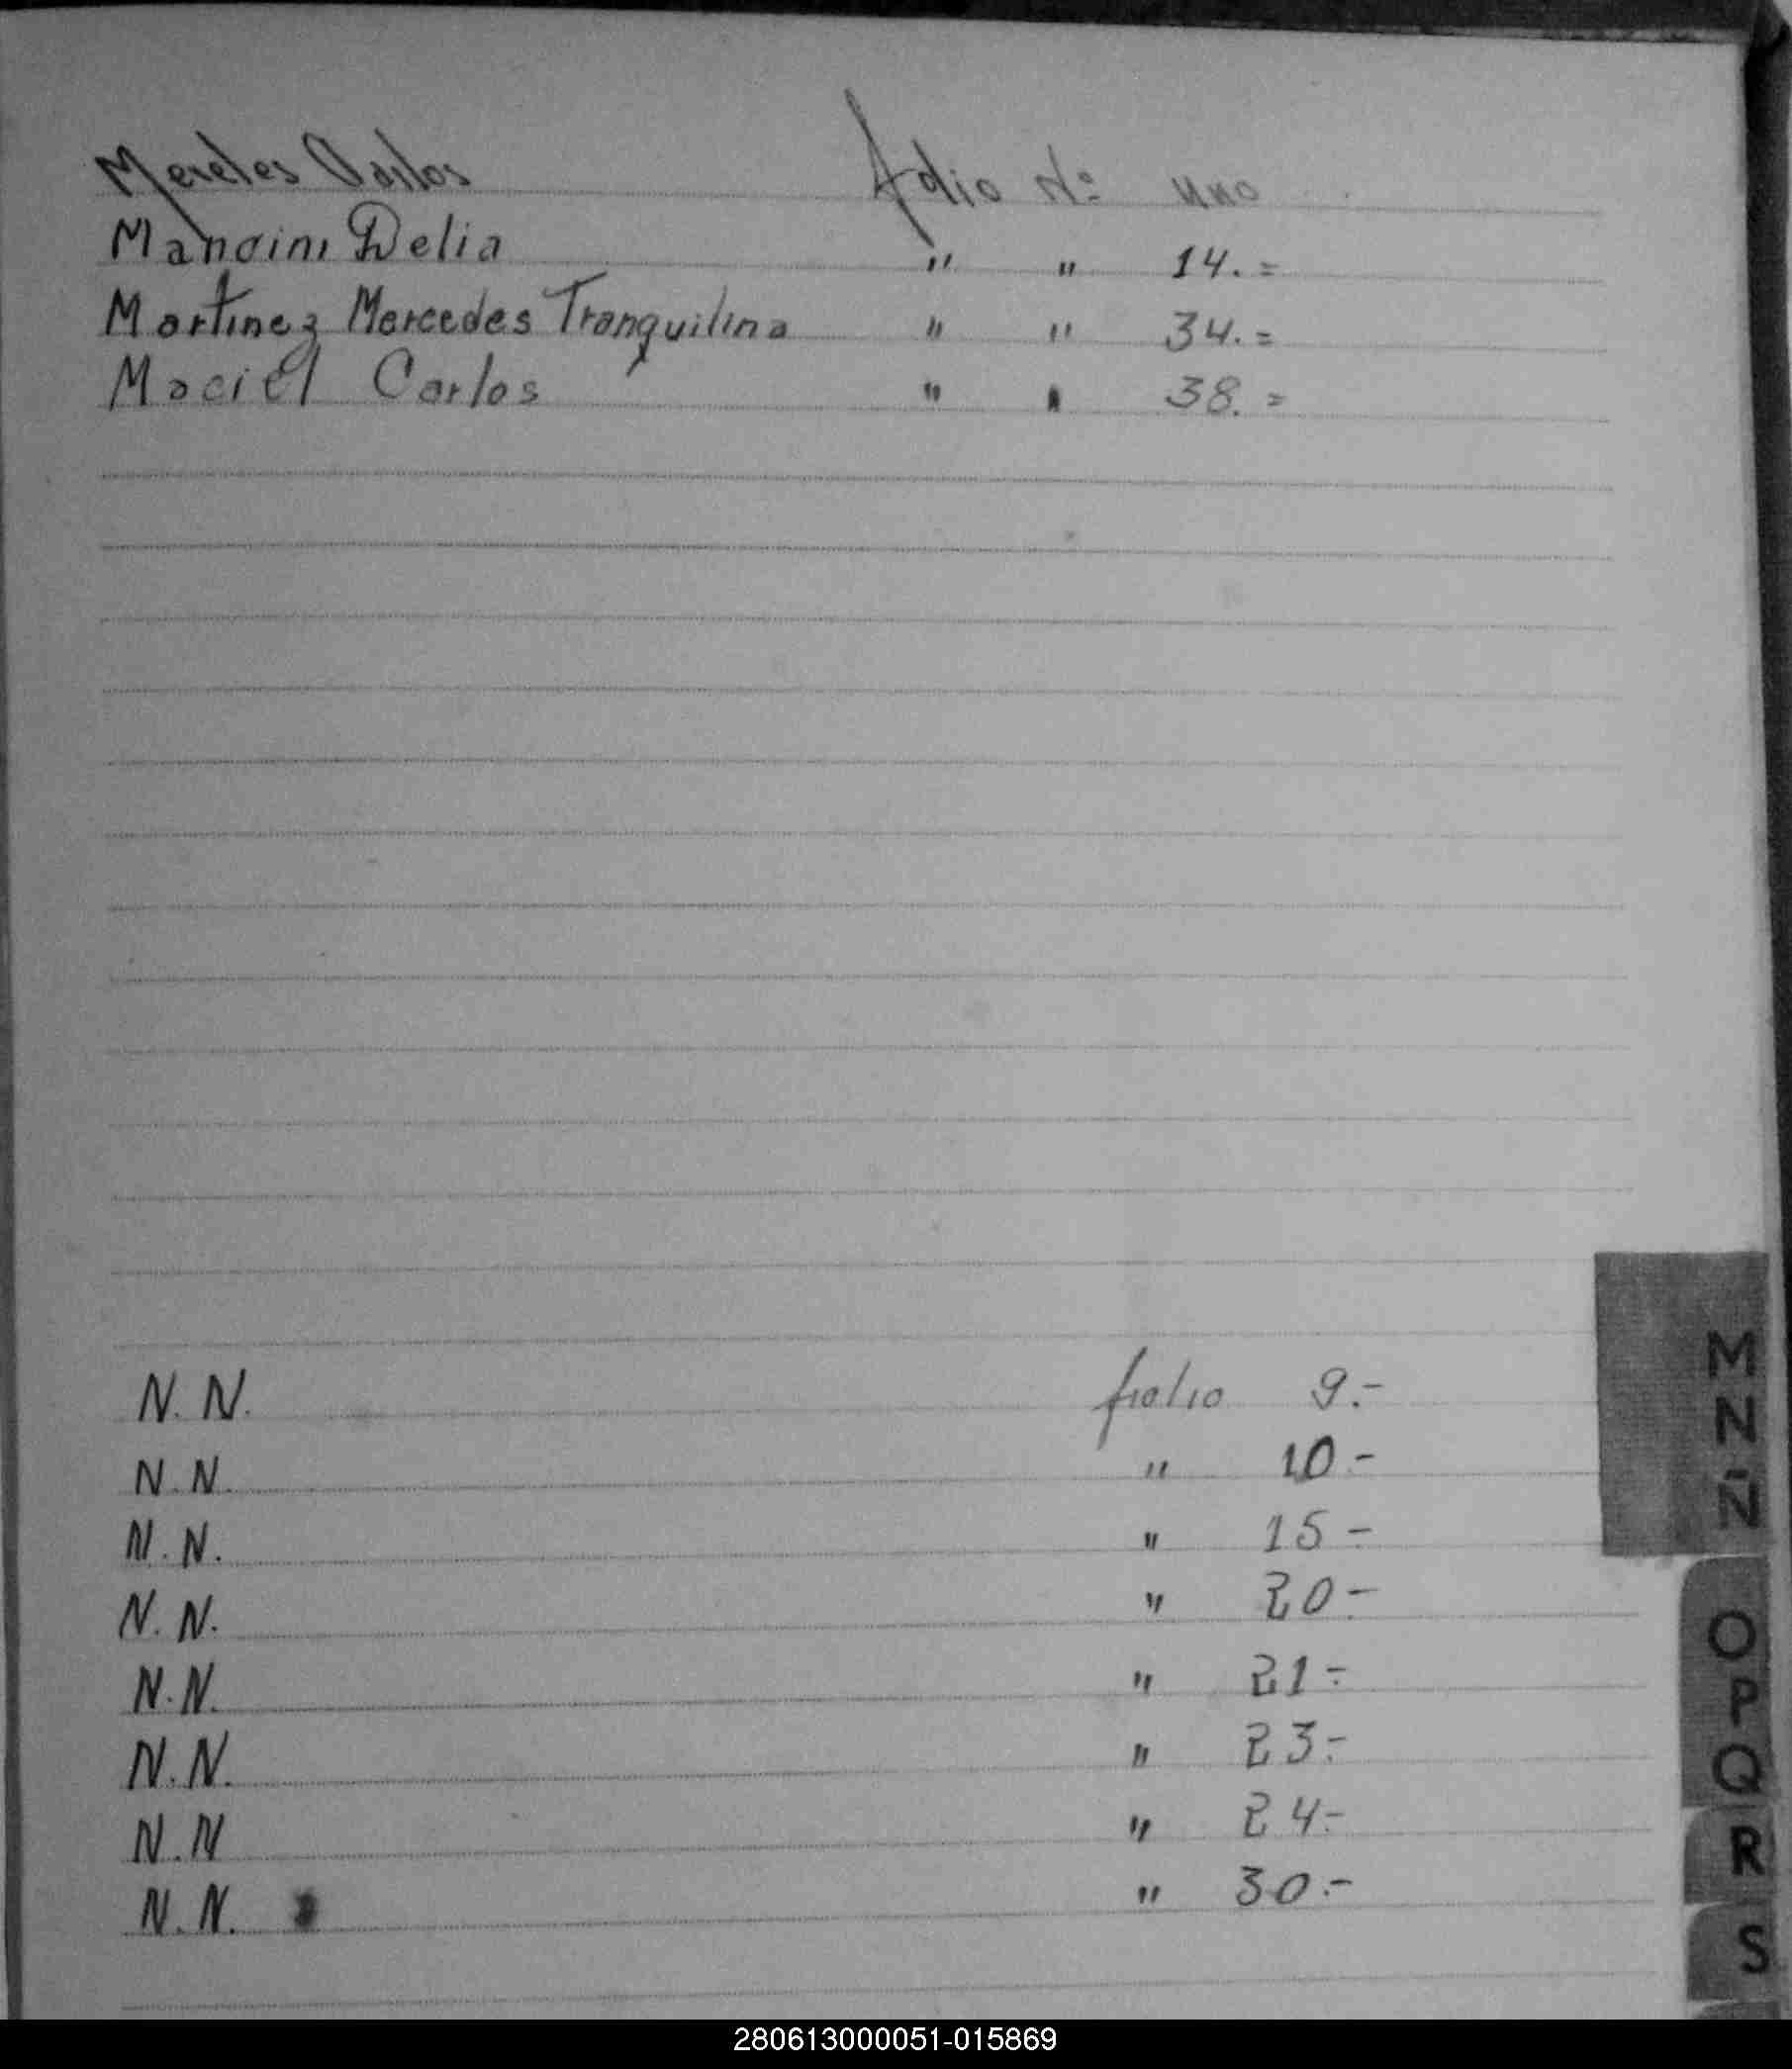 Mereles Carlos folio Nº uno
Mancini Delia " " 14.=
Martinez Mercedes Tranquilina " " 34.=
Maciel Carlos " " 38.=
N.N. folio 9.-
N.N. " 10.-
N.N. " 15-
N.N. " 20-
N.N. " 21-
N.N. " 23-
N.N " 24-
N.N. " 30.-
M
N
Ñ
O
P
Q
R
S
280613000051-015869